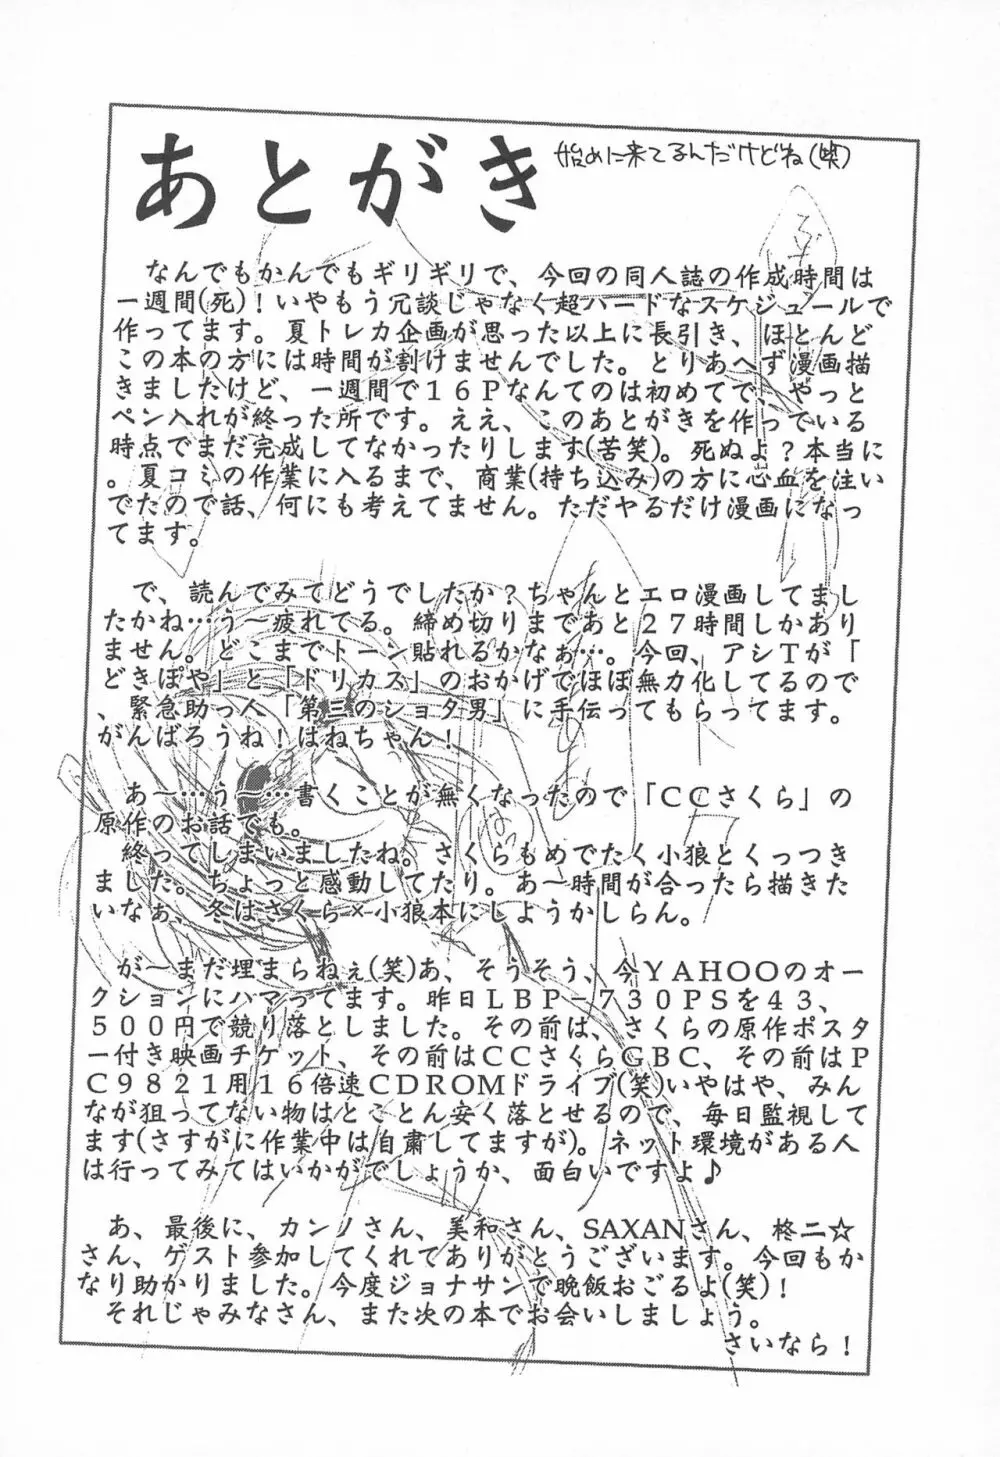 あとがき
始めに来てるんだけどね(笑)
なんでもかんでもギリギリで、今回の同人誌の作成時間は
一週間(死)!いやもう冗談じゃなく超ハードなスケジュールで
作ってます。夏トレカ企画が思った以上に長引き、ほとんど
この本の方には時間が割けませんでした。とりあへず漫画描
きましたけど、一週間で16Pなんてのは初めてで、やっと
ペン入れが終った所です。ええ、このあとがきを作っている
時点でまだ完成してなかったりします(苦笑)。死ぬよ?本当に
。夏コミの作業に入るまで、商業(持ち込み)の方に心血を注い
でたので話、何にも考えてません。ただヤるだけ漫画になっ
てます。
で、読んでみてどうでしたか?ちゃんとエロ漫画してまし
たかね…う~疲れてる。締め切りまであと27時間しかあり
ません。どこまでトーン貼れるかなぁ…。今回、アシTが「
どきぽや」と「ドリカス」のおかげでほぼ無力化してるので
、緊急助っ人「第三のショタ男」に手伝ってもらってます。
がんばろうね!はねちゃん!
あ~…う~…書くことが無くなったので「CCさくら」の
原作のお話でも。
終ってしまいましたね。さくらもめでたく小狼とくっつき
ました。ちょっと感動してたり。あ~時間が合ったら描きた
いなぁ、冬はさくら×小狼本にしようかしらん。
が~まだ埋まらねぇ(笑)あ、そうそう、今YAHOOのオー
クションにハマってます。昨日LBP-730PSを43、
500円で競り落としました。その前は、さくらの原作ポスタ
ー付き映画チケット、その前はCCさくらGBC、その前はP
C9821用16倍速CDROMドライブ(笑)いやはや、みん
なが狙ってない物はとことん安く落とせるので、毎日監視して
ます(さすがに作業中は自粛してますが)。ネット環境がある人
は行ってみてはいかがでしょうか、面白いですよ♪
あ、最後に、カンノさん、美和さん、SAXANさん、柊ニ☆
さん、ゲスト参加してくれてありがとうございます。今回もか
なり助かりました。今度ジョナサンで晩飯おごるよ(笑)!
それじゃみなさん、また次の本でお会いしましょう。
さいなら!